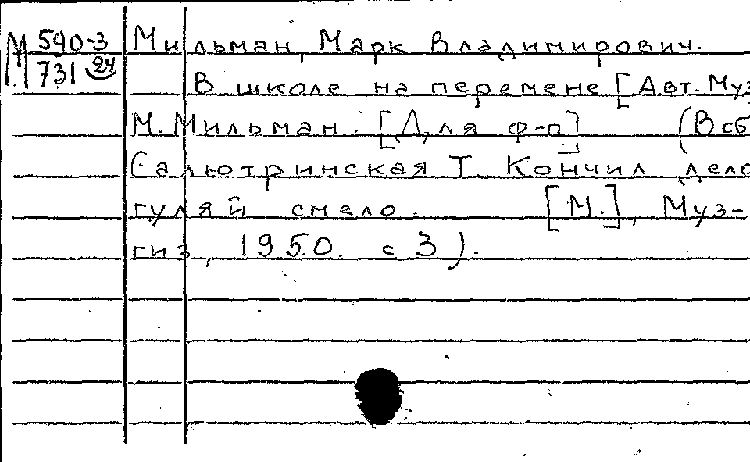 М 590-3 Мильман, Марк Владимирович.
731 24 В школе на перемене [Авт. Муз
М. Мильман. [Для ф-п] (В сб
Салютринская Т. Кончил дело
гуляй смело. [М.], Муз-
гиз, 1950. с 3).